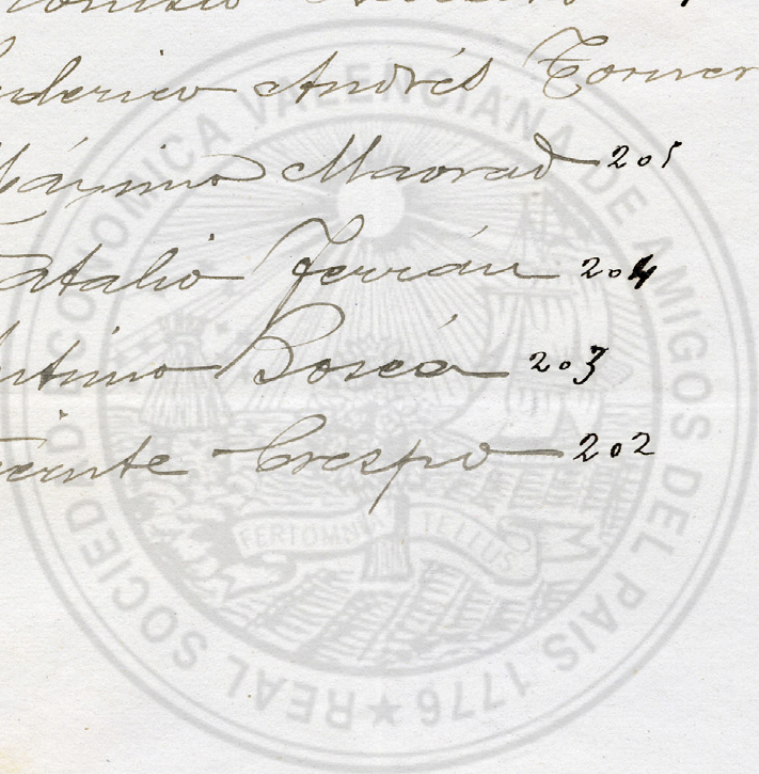 uderico Andrés Torner
Máximo Maorad 205
atalio Ferrán 204
ntimo Boscá 203
icente Crespo 202
REAL SOCIEDAD ECONOMICA VALENCIANA DE AMIGOS DEL PAIS 1776
FERT OMNIA TELLUS